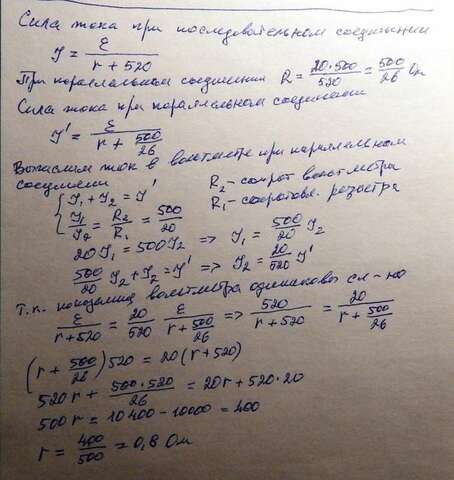 Сила тока при последовательном соединении
J = ε / (r + 520)
При параллельном соединении R = 20·500 / 520 = 500 / 26 Ом
Сила тока при параллельном соединении
J' = ε / (r + 500/26)
Вычислим ток в вольтметре при параллельном
соединении
{ J₁ + J₂ = J'
J₁ / J₂ = R₂ / R₁ = 500 / 20
R₂ - сопрот вольтметра
R₁ - сопротивл. резистра
20 J₁ = 500 J₂ => J₁ = 500/20 J₂
500/20 J₂ + J₂ = J' => J₂ = 20/520 J'
Т.к. показания вольтметра одинаковы сл-но
ε / (r + 520) = 20/520 ε / (r + 500/26) => 520 / (r + 520) = 20 / (r + 500/26)
(r + 500/26) 520 = 20 (r + 520)
520 r + 500·520 / 26 = 20 r + 520·20
500 r = 10 400 - 10000 = 400
r = 400 / 500 = 0,8 Ом